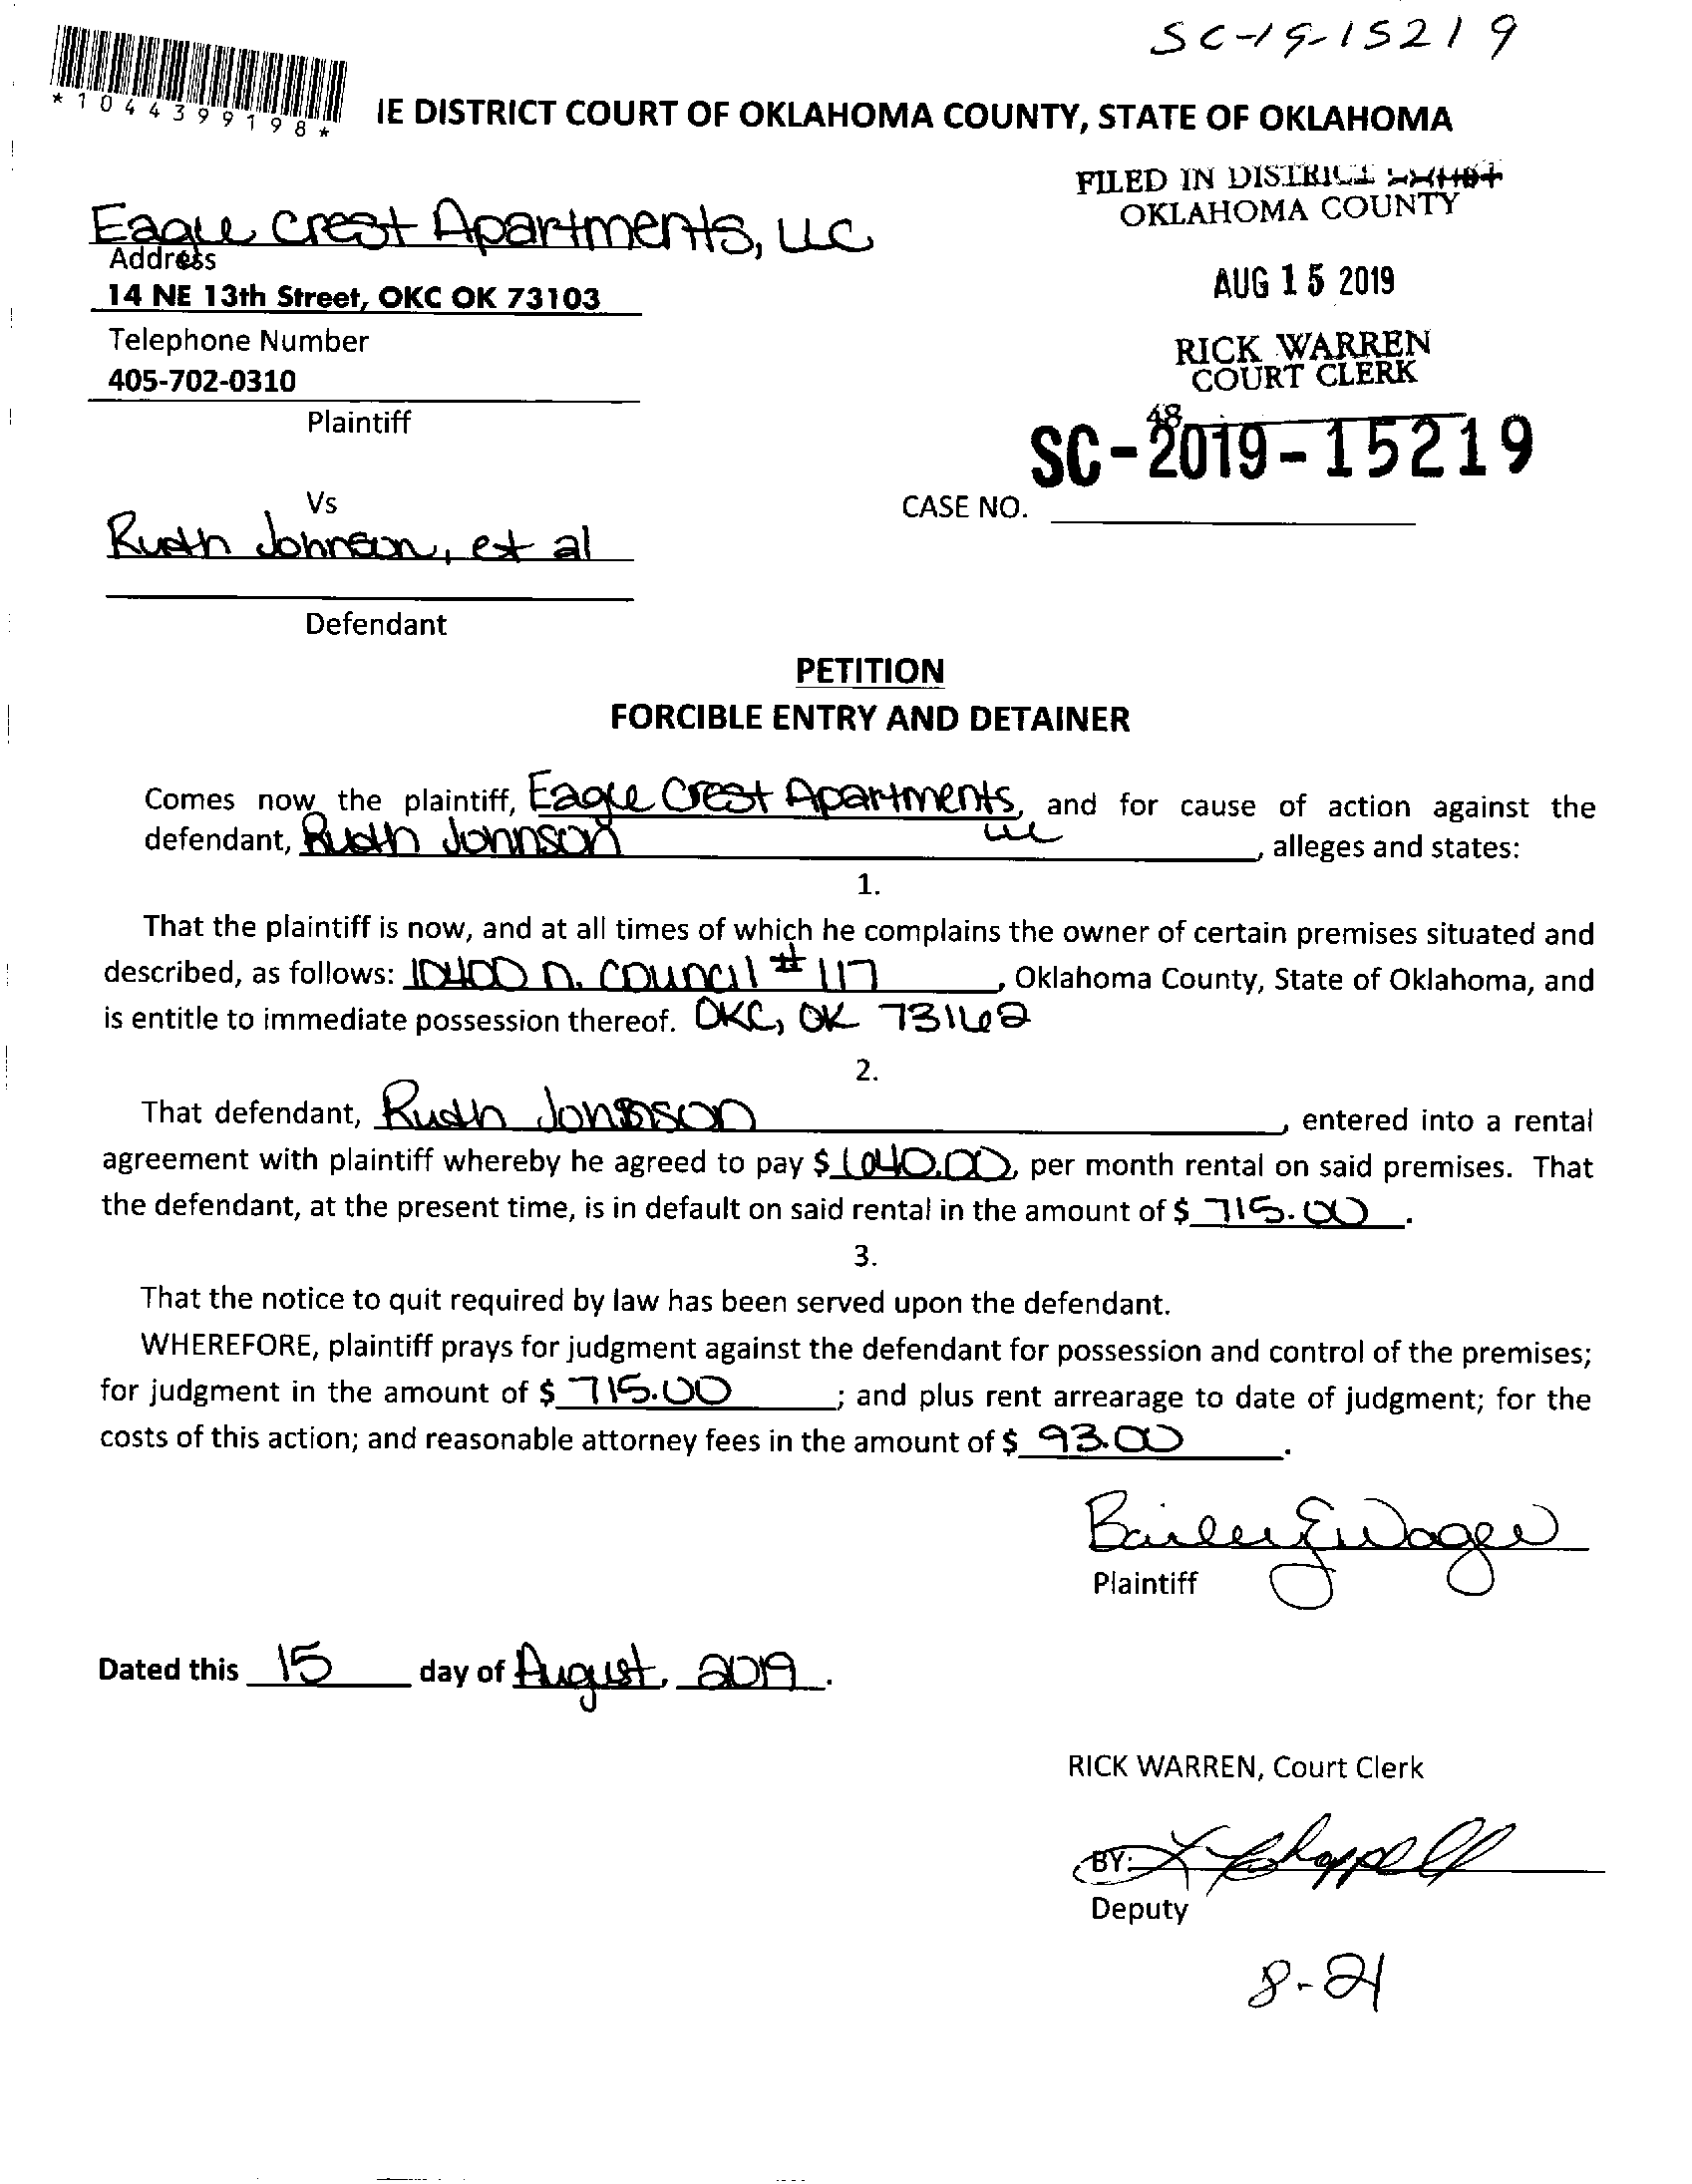 SC-19-15219
*1044399198*
IE DISTRICT COURT OF OKLAHOMA COUNTY, STATE OF OKLAHOMA
FILED IN DISTRICT
OKLAHOMA COUNTY
Eagle Crest Apartments, LLC
Address
14 NE 13th Street, OKC OK 73103
AUG 15 2019
Telephone Number
405-702-0310
RICK WARREN
COURT CLERK
Plaintiff
48
SC-2019-15219
CASE NO.
Vs
Ruth Johnson, et al
Defendant
PETITION
FORCIBLE ENTRY AND DETAINER
Comes now the plaintiff, Eagle Crest Apartments, and for cause of action against the
LLC
defendant, Ruth Johnson, alleges and states:
1.
That the plaintiff is now, and at all times of which he complains the owner of certain premises situated and
described, as follows: 10400 N. Council #117, Oklahoma County, State of Oklahoma, and
is entitle to immediate possession thereof. OKC, OK 73162
2.
That defendant, Ruth Johnson, entered into a rental
agreement with plaintiff whereby he agreed to pay $ , per month rental on said premises. That
the defendant, at the present time, is in default on said rental in the amount of $ 715.00.
3.
That the notice to quit required by law has been served upon the defendant.
WHEREFORE, plaintiff prays for judgment against the defendant for possession and control of the premises;
for judgment in the amount of $ 715.00; and plus rent arrearage to date of judgment; for the
costs of this action; and reasonable attorney fees in the amount of $ 93.00.
Plaintiff
Dated this 15 day of August, 2019.
RICK WARREN, Court Clerk
BY: Chappell
Deputy
8-21